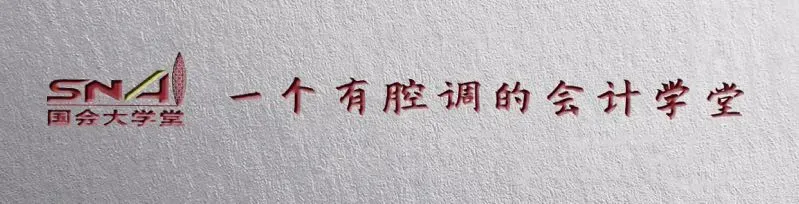 SNAI
国会大学堂
一个有腔调的会计学堂